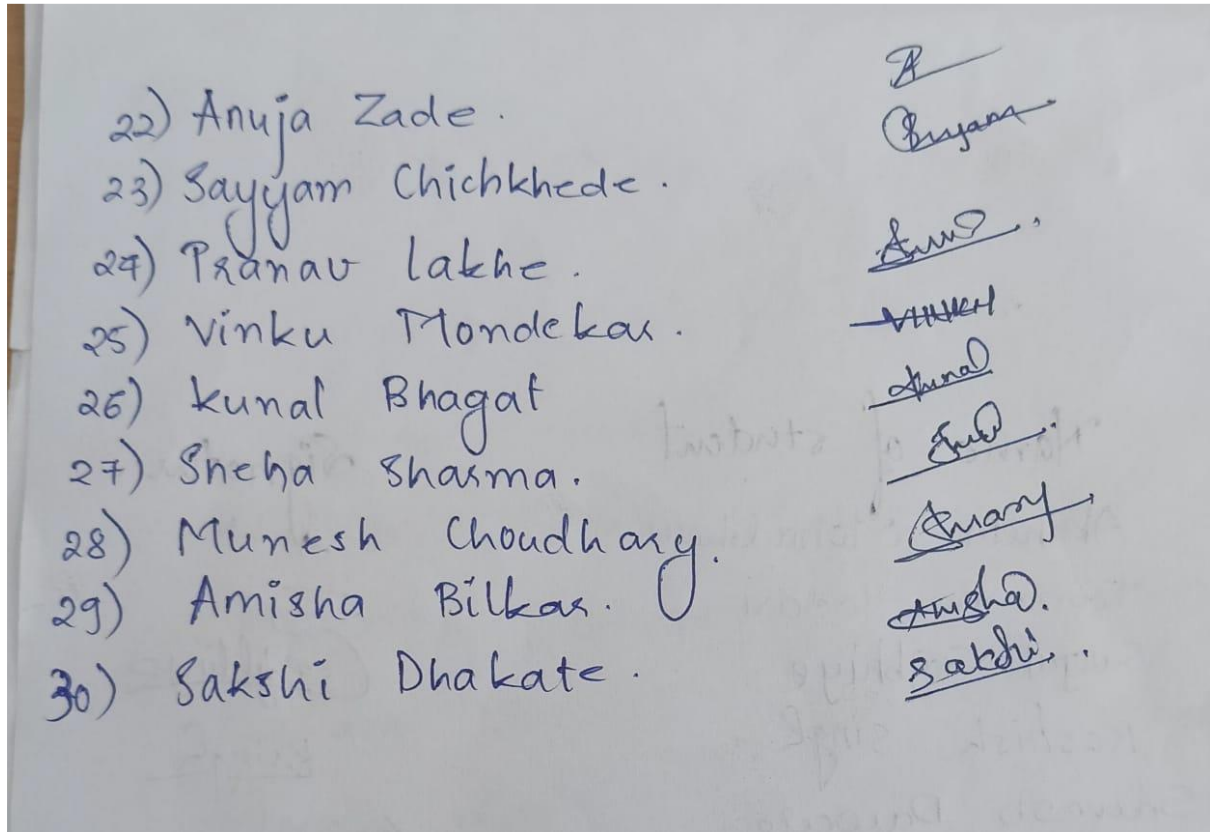 22) Anuja Zade.
23) Sayyam Chichkhede.
24) Pranav lakhe.
25) Vinku Mondekar.
26) kunal Bhagat kunal
27) Sneha Sharma.
28) Munesh Choudhary.
29) Amisha Bilkar. Amisha.
30) Sakshi Dhakate. Sakshi.